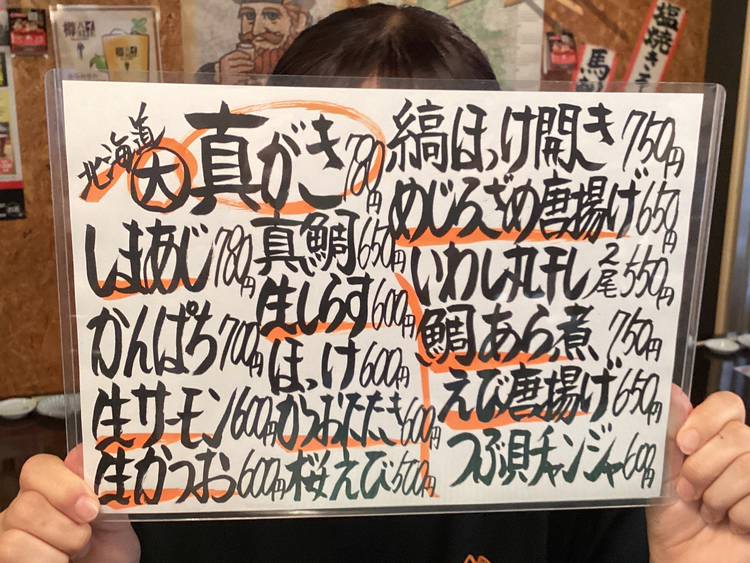 北海道 大 真がき 780円
しまあじ 780円
かんぱち 700円
生サーモン 600円
生かつお 600円
真鯛 650円
生しらす 600円
ほっけ 600円
かつおたたき 600円
桜えび 500円
縞ほっけ開き 750円
めじろざめ唐揚げ 650円
いわし丸干し 2尾 550円
鯛あら煮 750円
えび唐揚げ 650円
つぶ貝チャンジャ 600円
塩焼きそ
馬